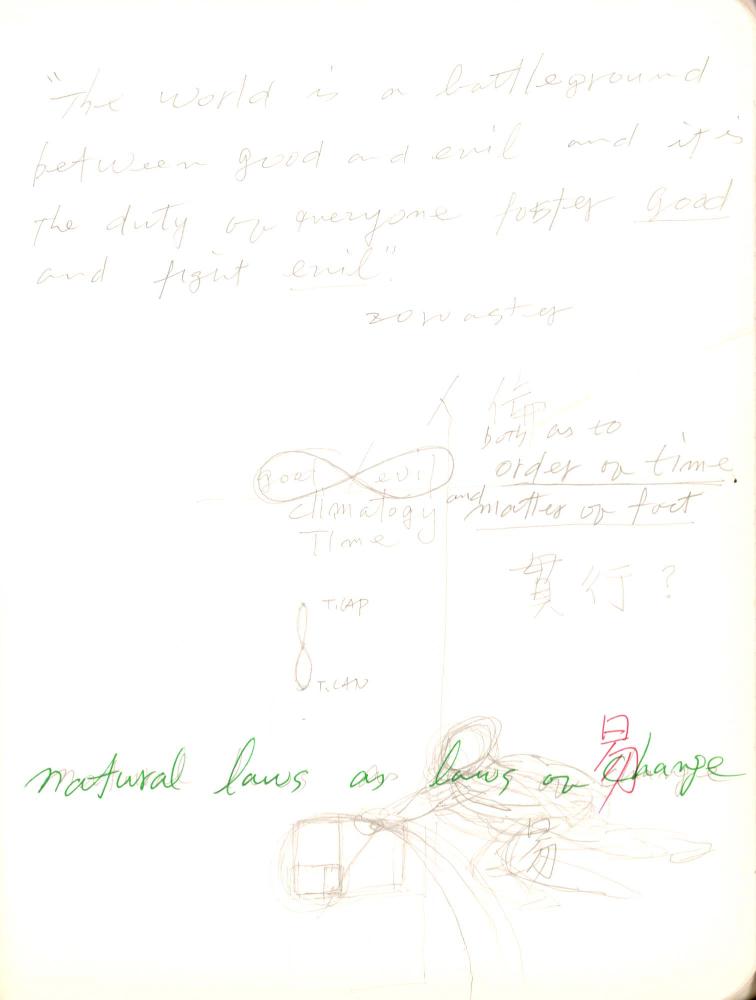 "The world is a battleground
between good and evil and it is
the duty of everyone foster good
and fight evil".
zoroaster
倫
both as to
order of time
good / evil
climatogy and matter of fact
Time
貫行?
T.CAP
T.CAN
易
natural laws as laws of change
易